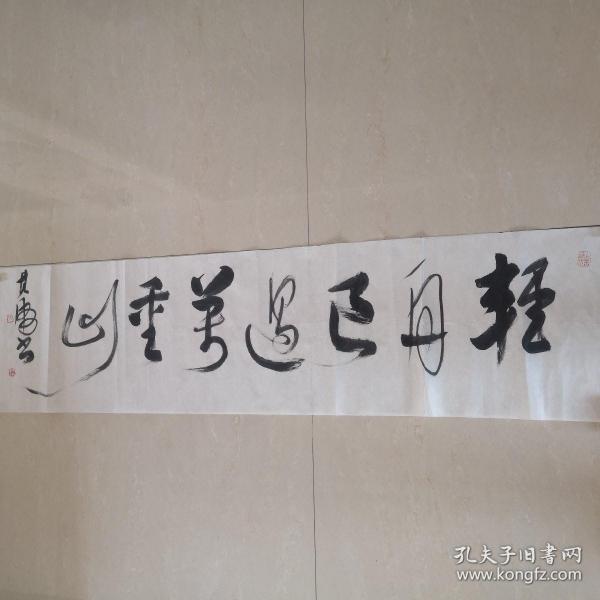 輕舟已過萬重山
孔夫子旧书网
www.kongfz.com